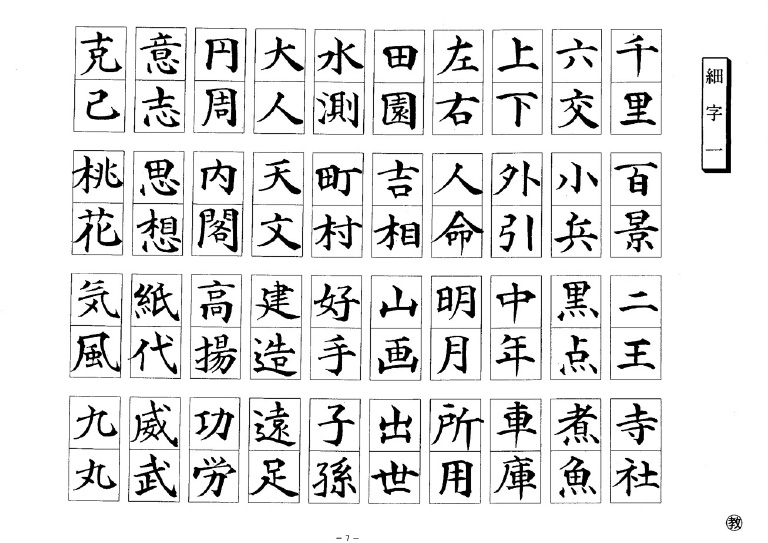 細字一
千里
六交
上下
左右
田園
水測
大人
円周
意志
克己
百景
小兵
外引
人命
吉相
町村
天文
内閣
思想
桃花
二王
黒点
中年
明月
山画
好手
建造
高揚
紙代
気風
寺社
煮魚
車庫
所用
出世
子孫
遠足
功労
威武
九丸
教
-7-